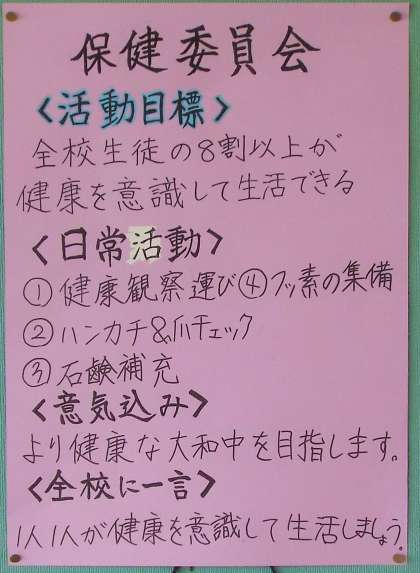 保健委員会
<活動目標>
全校生徒の8割以上が
健康を意識して生活できる
<日常活動>
①健康観察運び④フッ素の集備
②ハンカチ&爪チェック
③石鹸補充
<意気込み>
より健康な大和中を目指します。
<全校に一言>
1人1人が健康を意識して生活しましょう。